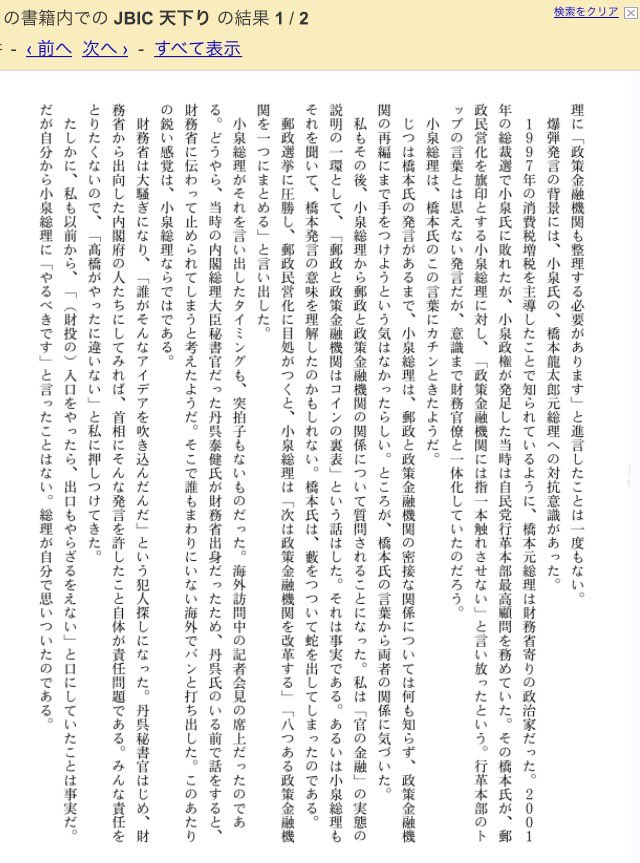 の書籍内での JBIC 天下り の結果 1 / 2
検索をクリア
- ‹ 前へ 次へ › - すべて表示
理に「政策金融機関も整理する必要があります」と進言したことは一度もない。
爆弾発言の背景には、小泉氏の、橋本龍太郎元総理への対抗意識があった。
1997年の消費税増税を主導したことで知られているように、橋本元総理は財務省寄りの政治家だった。2001
年の総裁選で小泉氏に敗れたが、小泉政権が発足した当時は自民党行革本部最高顧問を務めていた。その橋本氏が、郵
政民営化を旗印とする小泉総理に対し、「政策金融機関には指一本触れさせない」と言い放ったという。行革本部のト
ップの言葉とは思えない発言だが、意識まで財務官僚と一体化していたのだろう。
小泉総理は、橋本氏のこの言葉にカチンときたようだ。
じつは橋本氏の発言があるまで、小泉総理は、郵政と政策金融機関の密接な関係については何も知らず、政策金融機
関の再編にまで手をつけようという気はなかったらしい。ところが、橋本氏の言葉から両者の関係に気づいた。
私もその後、小泉総理から郵政と政策金融機関の関係について質問されることになった。私は「官の金融」の実態の
説明の一環として、「郵政と政策金融機関はコインの裏表」という話はした。それは事実である。あるいは小泉総理も
それを聞いて、橋本発言の意味を理解したのかもしれない。橋本氏は、藪をつついて蛇を出してしまったのである。
郵政選挙に圧勝し、郵政民営化に目処がつくと、小泉総理は「次は政策金融機関を改革する」「八つある政策金融機
関を一つにまとめる」と言い出した。
小泉総理がそれを言い出したタイミングも、突拍子もないものだった。海外訪問中の記者会見の席上だったのであ
る。どうやら、当時の内閣総理大臣秘書官だった丹呉泰健氏が財務省出身だったため、丹呉氏のいる前で話をすると、
財務省に伝わって止められてしまうと考えたようだ。そこで誰もまわりにいない海外でバンと打ち出した。このあたり
の鋭い感覚は、小泉総理ならではである。
財務省は大騒ぎになり、「誰がそんなアイデアを吹き込んだんだ」という犯人探しになった。丹呉秘書官はじめ、財
務省から出向した内閣府の人たちにしてみれば、首相にそんな発言を許したこと自体が責任問題である。みんな責任を
とりたくないので、「髙橋がやったに違いない」と私に押しつけてきた。
たしかに、私も以前から、「（財投の）入口をやったら、出口もやらざるをえない」と口にしていたことは事実だ。
だが自分から小泉総理に「やるべきです」と言ったことはない。総理が自分で思いついたのである。